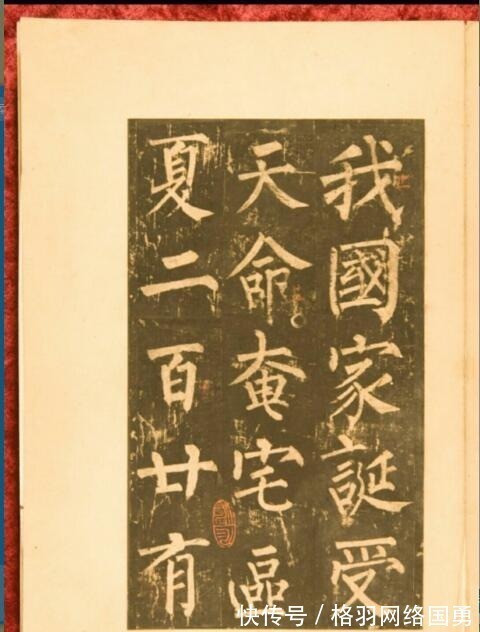 我國家誕受
天命奄宅區
夏二百廿有
快传号 / 格羽网络国勇